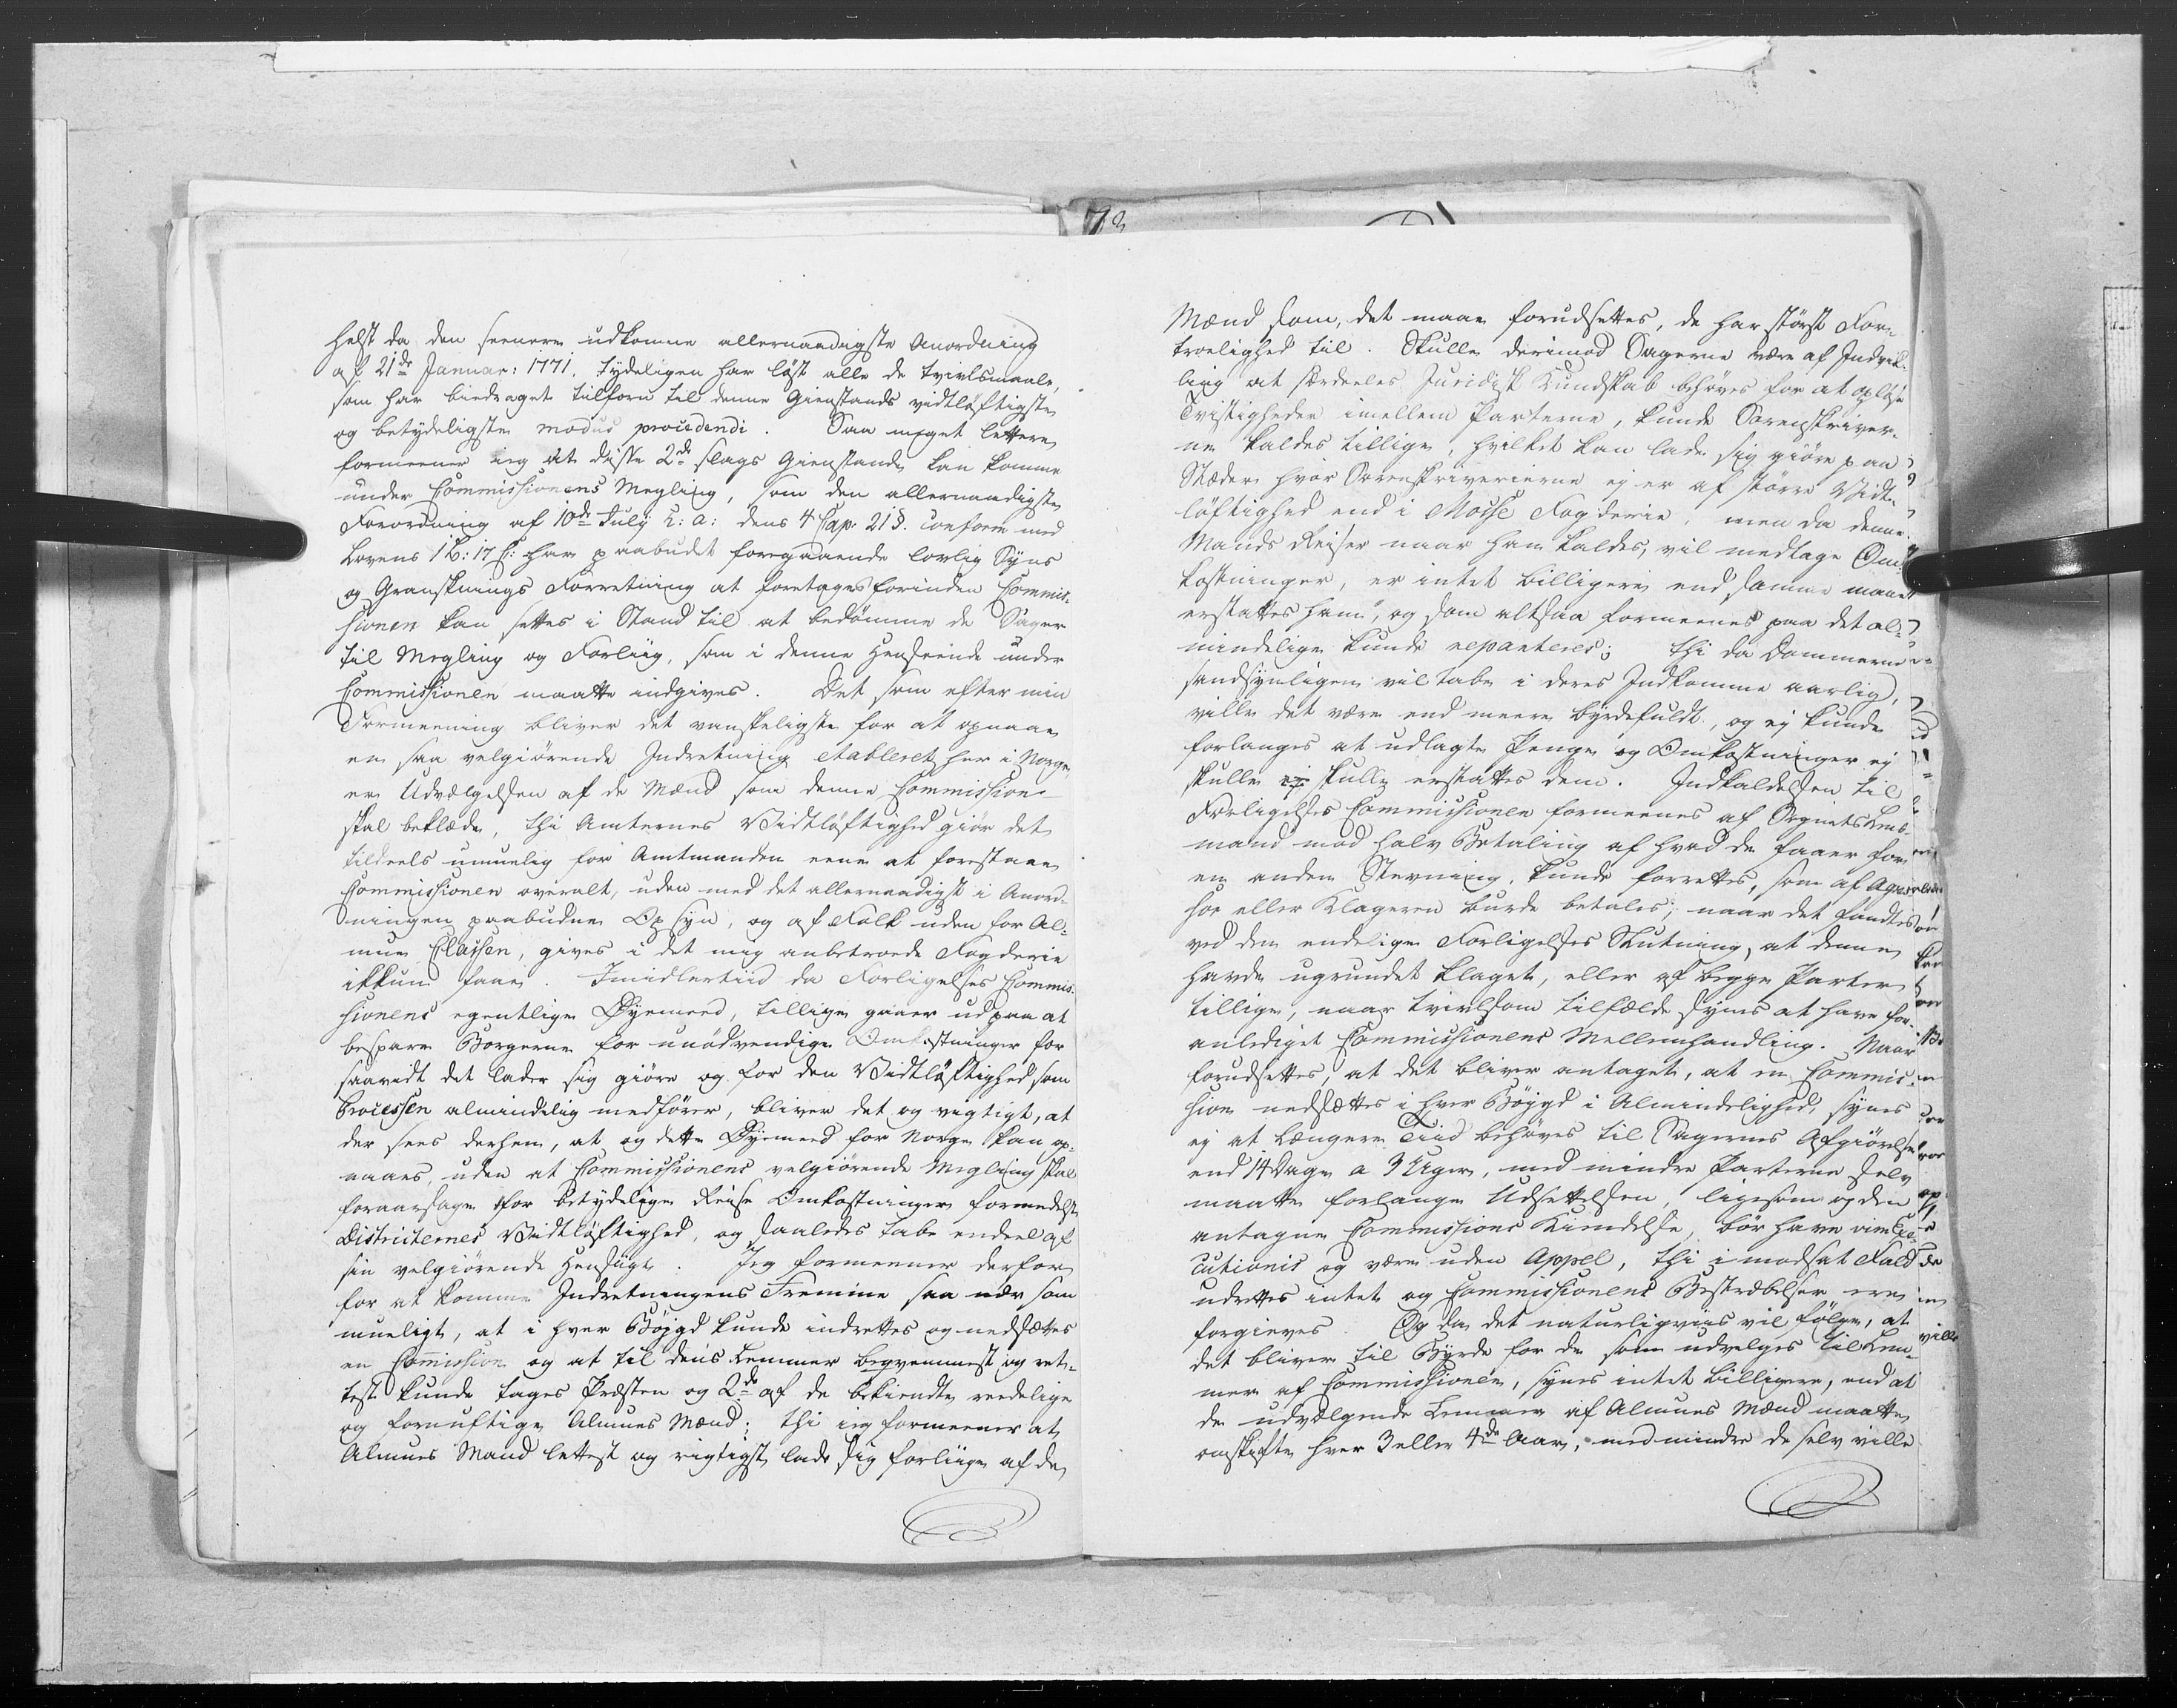 helst da den seenere udkomne allernaadigste Anordning
af 21de Januar: 1771. tydeligen har løst alle de tvivlsmaale,
som har biedraget tilforn til denne Gienstands vidtløftigste
og betydeligste modus procedendi. Saa meget lettere
formeener ieg at disse 2de slags Gienstande kan komme
under Commissionens Megling, som den allernaadigste
Forordning af 10de July h: a: dens 4 Cap: 21§. conform med
Lovens 1 B: 17 C: har paabudet foregaaende lovlig Syns
og Gransknings Forretning at foretages forinden Commis-
sionen kan settes i Stand til at bedømme de Sager
til Megling og Forliig, som i denne Henseende under
Commissionen maatte indgives. Det som efter min
Formeening bliver det vanskeligste for at opnaae
en saa velgiørende Indretning etableret her i Norge,
er Udvælgelsen af de Mænd som denne Commission
skal beklæde, thi Amternes Vidtløftighed giør det
tildeels umuelig for Amtmanden eene at forestaae
Commissionen overalt, uden med det allernaadigst i Anord-
ningen paabudne Opsyn, og af Folk uden for Al-
mue Classen, gives i det mig anbetroede Fogderie
ikkun faae. Imidlertiid da Forligelses Commis-
sionens egentlige Øyemeed, tillige gaaer ud paa at
bespare Borgerne for unødvendige Omkostninger for
saavidt det lader sig giøre og for den Vidtløftighed som
Processen almindelig medfører, bliver det og vigtigt, at
der sees derhen, at og dette Øyemeed for Norge kan op-
naaes, uden at Commissionens velgiørende Megling skal
foraarsage for betydelige Reise Omkostninger formedelst
Districternes Vidtløftighed, og saaledes tabe endeel af
sin velgiørende Hensigt. Jeg formeener derfor
for at komme Indretningens Fremme saa nær som
mueligt, at i hver Bøygd kunde indrettes og nedsættes
en Commission og at til dens Lemmer beqvemmest og ret-
test kunde tages Præsten og 2de af de bekiendte reedelige
og fornuftige Almues Mænd; thi ieg formeener at
Almues Mand lettest og rigtigst lade sig forliige af de
Mænd som, det maae forudsettes, de har størst For-
troelighed til. Skulle derimod Sagerne være af Indvik-
ling at særdeeles Juridisk Kundskab behøves for at opløse
Tvistigheder imellem Parterne, kunde Sorenskriver-
ne kaldes tillige, hvilket kan lade sig giøre paa
Stæder hvor Sorenskriverierne ej er af større Vidt-
løftighed end i Mosse Fogderie, men da denne
Mands Reiser naar han kaldes, vil medtage Om-
kostninger, er intet billigere end samme maae
erstattes ham, og som altsaa formeenes paa det al-
mindelige kunde repanteres; thi da Dommerne
sandsynligen vil tabe i deres Indkomme aarlig,
ville det være end meere byrdefuldt, og ej kunde
forlanges at udlagte Penge og Omkostninger ej
skulle ej skulle erstattes dem. Indkaldelsen til
Forligelses Commissionen formeenes af Bøygdets Lens-
mand mod halv Betaling af hvad de faaer for
en anden Stevning, kunde forrettes, som af
hos eller Klageren burde betales, naar det fandtes
ved den endelige Forligelses Slutning, at denne
havde ugrundet klaget, eller af begge Parter
tillige, naar tvivlsom tilfælde synes at have for-
anlediget Commissionens Mellemhandling. Naar
forudsettes, at det bliver antaget, at en Commis-
sion nedsættes i hver Bøygd i Almindelighed, synes
ej at længere Tiid behøves til Sagernes Afgiørelse
end 14 Dage a 3 Uger, med mindre Parterne selv
maatte forlange Udsettelsen, ligesom og den
antagne Commissions Kiendelse, bør have vim Exe-
cutionis og være uden Appel, thi i modsat Fald
udrettes intet og Commissionens Bestræbelser ere
forgieves. Og da det naturligviis vil følge, at
det bliver til Byrde for de som udvelges til Lem-
mer af Commissionen, synes intet billigere, end at
de udvælgende Lemmer af Almues Mænd maatte
omskifte hver 3 eller 4de Aar, med mindre de selv ville